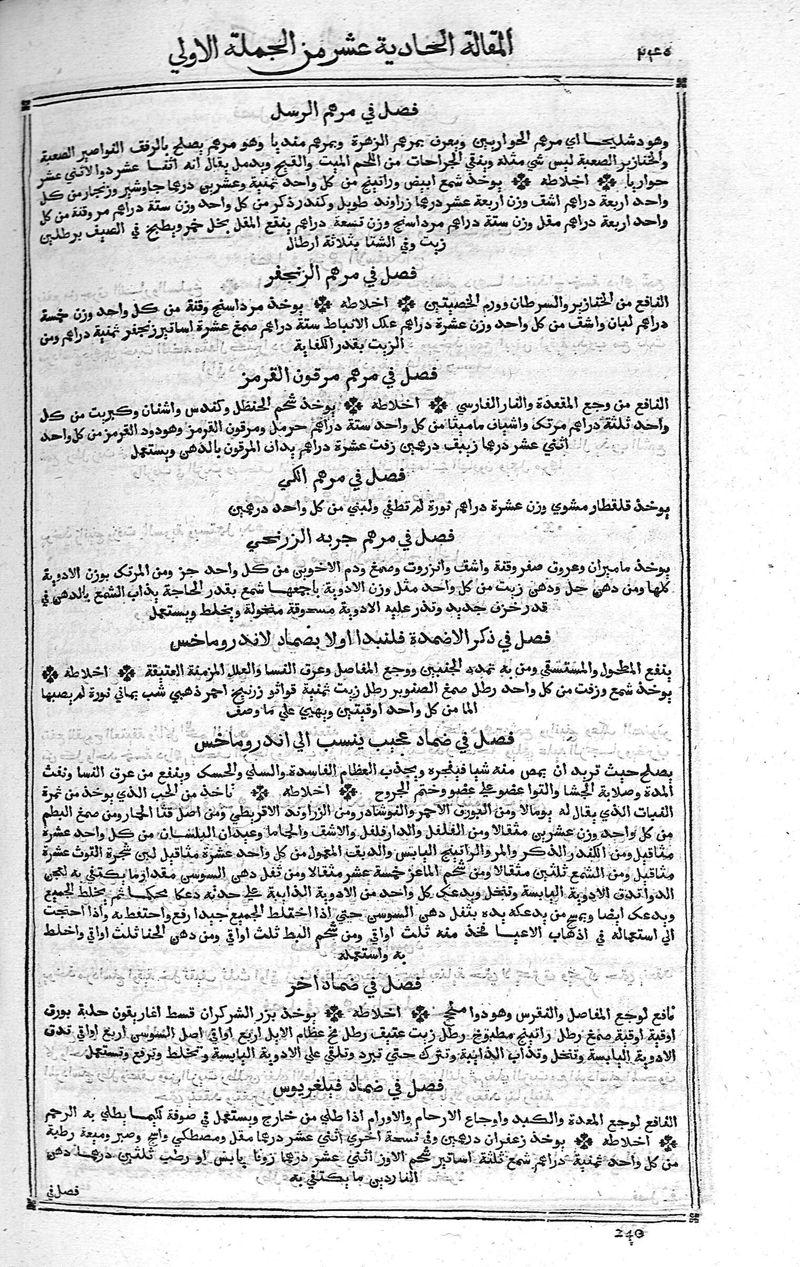 المقالة الحادية عشر من الجملة الاولي
٢٤٥
فصل في مرهم الرسل
وهو دشليحا اي مرهم الحواريين ويعرف بمرهم الزهرة وبمرهم منديا وهو مرهم يصلح بالرفق النواصير الصعبة
والخنازير الصعبة ليس شي مثله وينقي الجراحات من اللحم الميت والقيح ويدمل يقال انه اثنا عشر دوا لاثني عشر
حواريا اخلاطه يوخذ شمع ابيض وراتينج من كل واحد ثمنية وعشرين درهما جاوشير وزنجار من كل
واحد اربعة دراهم اشق وزن اربعة عشر درهما زراوند طويل وكندر ذكر من كل واحد وزن ستة دراهم مر وقنة من كل
واحد اربعة دراهم مقل وزن ستة دراهم مرداسنج وزن تسعة دراهم ينقع المقل بخل خمر ويطبخ في الصيف برطلين
زيت وفي الشتا بثلاثة ارطال
فصل في مرهم الزنجفر
النافع من الخنازير والسرطان وورم الخصيتين اخلاطه يوخذ مرداسنج وقنة من كل واحد وزن خمسة
دراهم لبان واشق من كل واحد وزن عشرة دراهم علك الانباط ستة دراهم صمغ عشرة اساتير زنجفر ثمنية دراهم ومن
الزيت بقدر الكفاية
فصل في مرهم مرقون القرمز
النافع من وجع المقعدة والنار الفارسي اخلاطه يوخذ شحم الحنظل وكندس واشنان وكبريت من كل
واحد ثلثة دراهم مرتك واشياف ماميثا من كل واحد ستة دراهم حرمل ومرقون القرمز وهو دود القرمز من كل واحد
اثني عشر درهما زيبق درهمين زفت عشرة دراهم يداف المرقون بالدهن ويستعمل
فصل في مرهم الكي
يوخذ قلقطار مشوي وزن عشرة دراهم نورة لم تطفي ولبني من كل واحد درهمين
فصل في مرهم جربه الزرنجي
يوخذ ماميران وعروق صفر وقنة واشق وانزروت وصمغ ودم الاخوين من كل واحد جز ومن المرتك بوزن الادوية
كلها ومن دهن جل ودهن زيت من كل واحد مثل وزن الادوية باجمعها شمع بقدر الحاجة يذاب الشمع بالدهن في
قدر خزف جديد وتذر عليه الادوية مسحوقة منخولة ويخلط ويستعمل
فصل في ذكر الاضمدة فلنبدا اولا بضماد لاندروماخس
ينفع المطحول والمستسقي ومن به تمدد الجنبين ووجع المفاصل وعرق النسا والعلل المزمنة العتيقة اخلاطه
يوخذ شمع وزفت من كل واحد رطل صمغ الصنوبر رطل زيت ثمنية قواثو زرنيخ احمر ذهبي شب يماني نورة لم يصبها
الما من كل واحد اوقيتين ويهيي علي ما وصف
فصل في ضماد عجيب ينسب الي اندروماخس
يصلح حيث تريد ان يمص منه شيا فينجره ويجذب العظام الفاسدة والسلي والحسك وينفع من عرق النسا ونفث
المدة وصلابة الحشا والتوا عضو علي عضو وختم الجروح اخلاطه تاخذ من الحب الذي يوخذ من ثمرة
النبات الذي يقال له يومالا ومن البورق الاحمر والنوشادر ومن الزراوند الاقريطي ومن اصل قثا الحمار ومن صمغ البطم
من كل واحد وزن عشرين مثقالا ومن الفلفل والدارفلفل والاشق والحاما وعيدان البلسان من كل واحد عشرة
مثاقيل ومن الكندر الذكر والمر والراتينج اليابس والدبق المعمول من كل واحد عشرة مثاقيل لبن شجرة التوث عشرة
مثاقيل ومن الشمع ثلثين مثقالا ومن شحم الماعز خمسة عشر مثقالا ومن ثفل دهن السوسن مقدار ما يكتفي به لعجن
الدوا تدق الادوية اليابسة وتنخل ويدعك كل واحد من الادوية الذايبة علي حدته دعكا محكما ثم يخلط الجميع
ويدعك ايضا من يدعكه يده بثفل دهن السوسن حتي اذا اختلط الجميع جيدا رفع واحتفظ به واذا احتجت
الي استعماله في اذهاب الاعيا فخذ منه ثلث اواقي ومن شحم البط ثلث اواقي ومن دهن الحنا ثلث اواقي واخلط
به واستعمله
فصل في ضماد اخر
نافع لوجع المفاصل والنقرس وهو دوا اخلاطه يوخذ بزر الشوكران قسط اغاريقون حلبة بورق
اوقية اوقية صمغ رطل راتينج مطبوخ رطل زيت عتيق رطل مخ عظام الايل اربع اواقي اصل السوسن اربع اواقي تدق
الادوية اليابسة وتنخل وتذاب الذايبة وتترك حتي تبرد وتلقي علي الادوية اليابسة وتخلط وترفع وتستعمل
فصل في ضماد فيلغريوس
النافع لوجع المعدة والكبد واوجاع الارحام والاورام اذا طلي من خارج ويستعمل في صوفة كليما يطلي به الرحم
اخلاطه يوخذ زعفران درهمين وفي نسخة اخري اثني عشر درهما مقل ومصطكي واشق وصبر وميعة رطبة
من كل واحد ثمنية دراهم شمع ثلثة اساتير شحم الاوز اثني عشر درهما زوفا يابس او رطب ثلثين درهما دهن
الناردين ما يكتفي به
فصل في
240